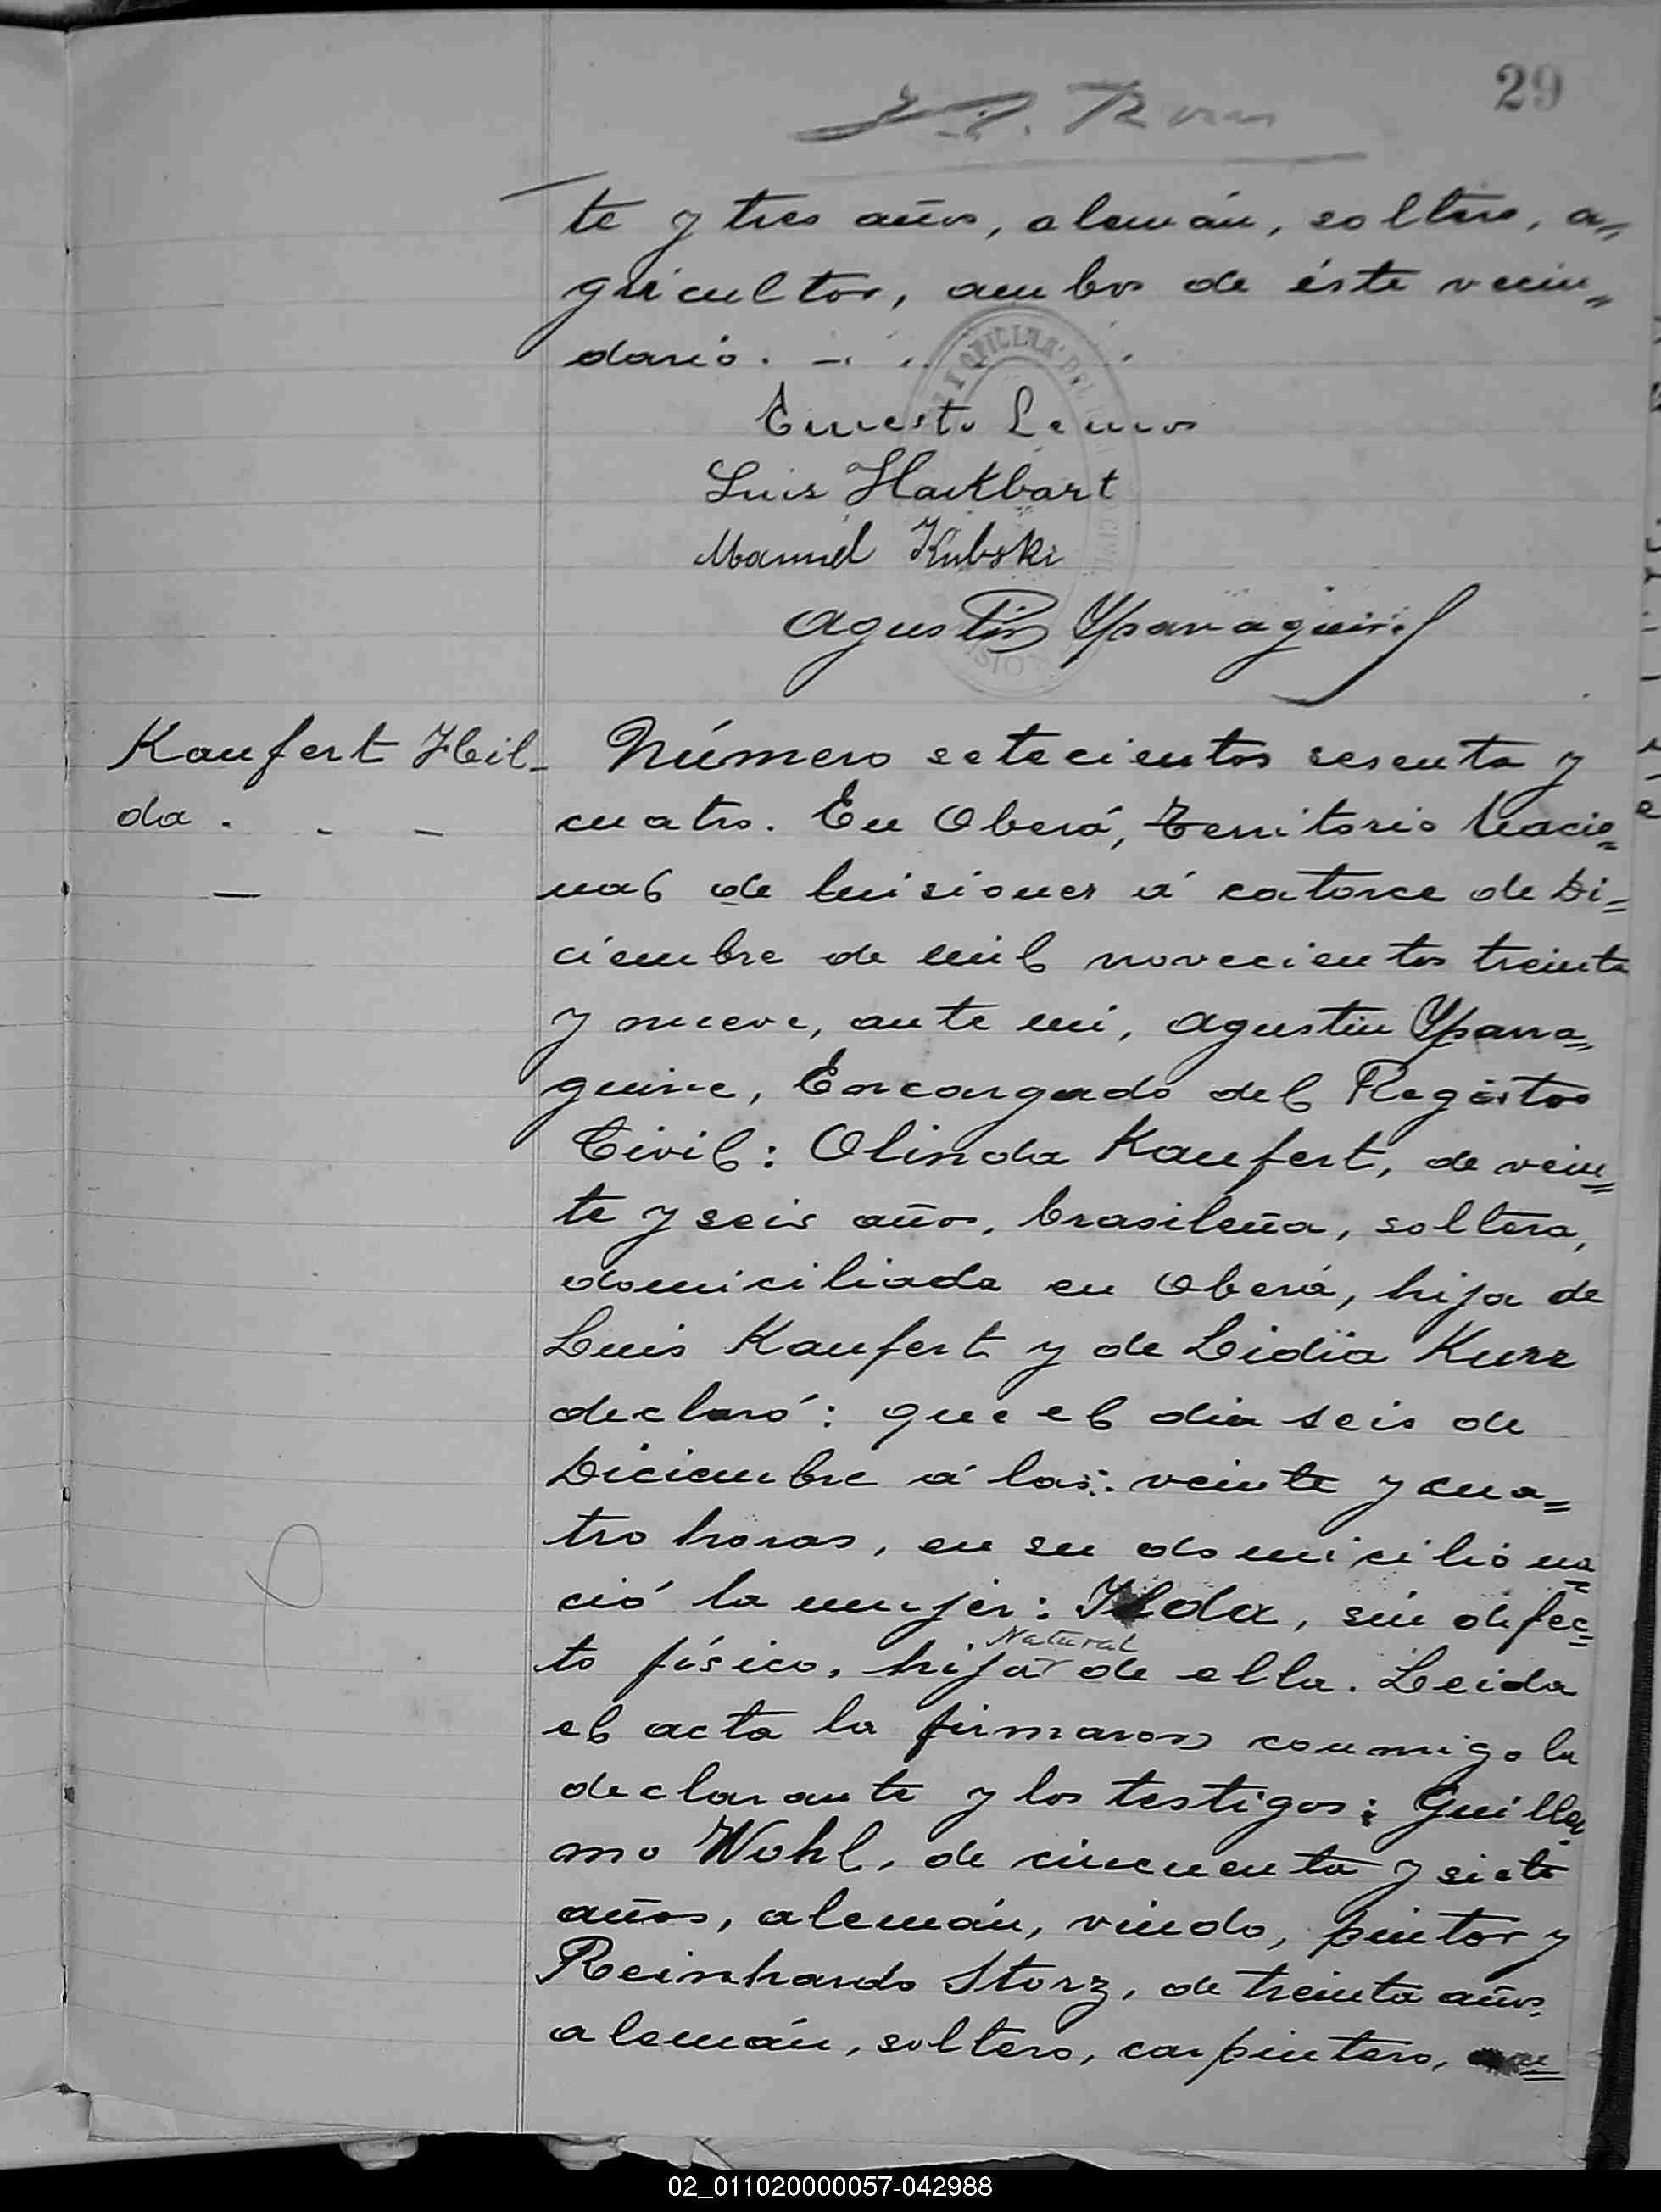 29
te y tres años, alemán, soltero, a=
gricultor, ambos de éste vecin=
dario.
OFICINA DEL
Ernesto Lemos
Luis Hackbart
Manuel Kubski
Agustin Yparraguirre
Kaufert Hil-
da . . -
Número setecientos sesenta y
cuatro. En Oberá, Territorio Nacio=
nal de Misiones á catorce de Di=
ciembre de mil novecientos treinta
y nueve, ante mi, Agustin Yparra=
guirre, Encargado del Registro
Civil: Olinda Kaufert, de vein=
te y seis años, brasileña, soltera,
domiciliada en Oberá, hija de
Luis Kaufert y de Lidia Kurz
declaró: que el dia seis de
Diciembre á las: veinte y cua=
tro horas, en su domicilio na=
ció la mujer: Ilda, sin defec=
Natural
to físico, hija de ella. Leida
el acta la firmaron conmigo la
declarante y los testigos: Guiller
mo Wohl, de cincuenta y siete
años, alemán, viudo, pintor y
Reinhardo Storz, de treinta años
alemán, soltero, carpintero,
02_011020000057-042988